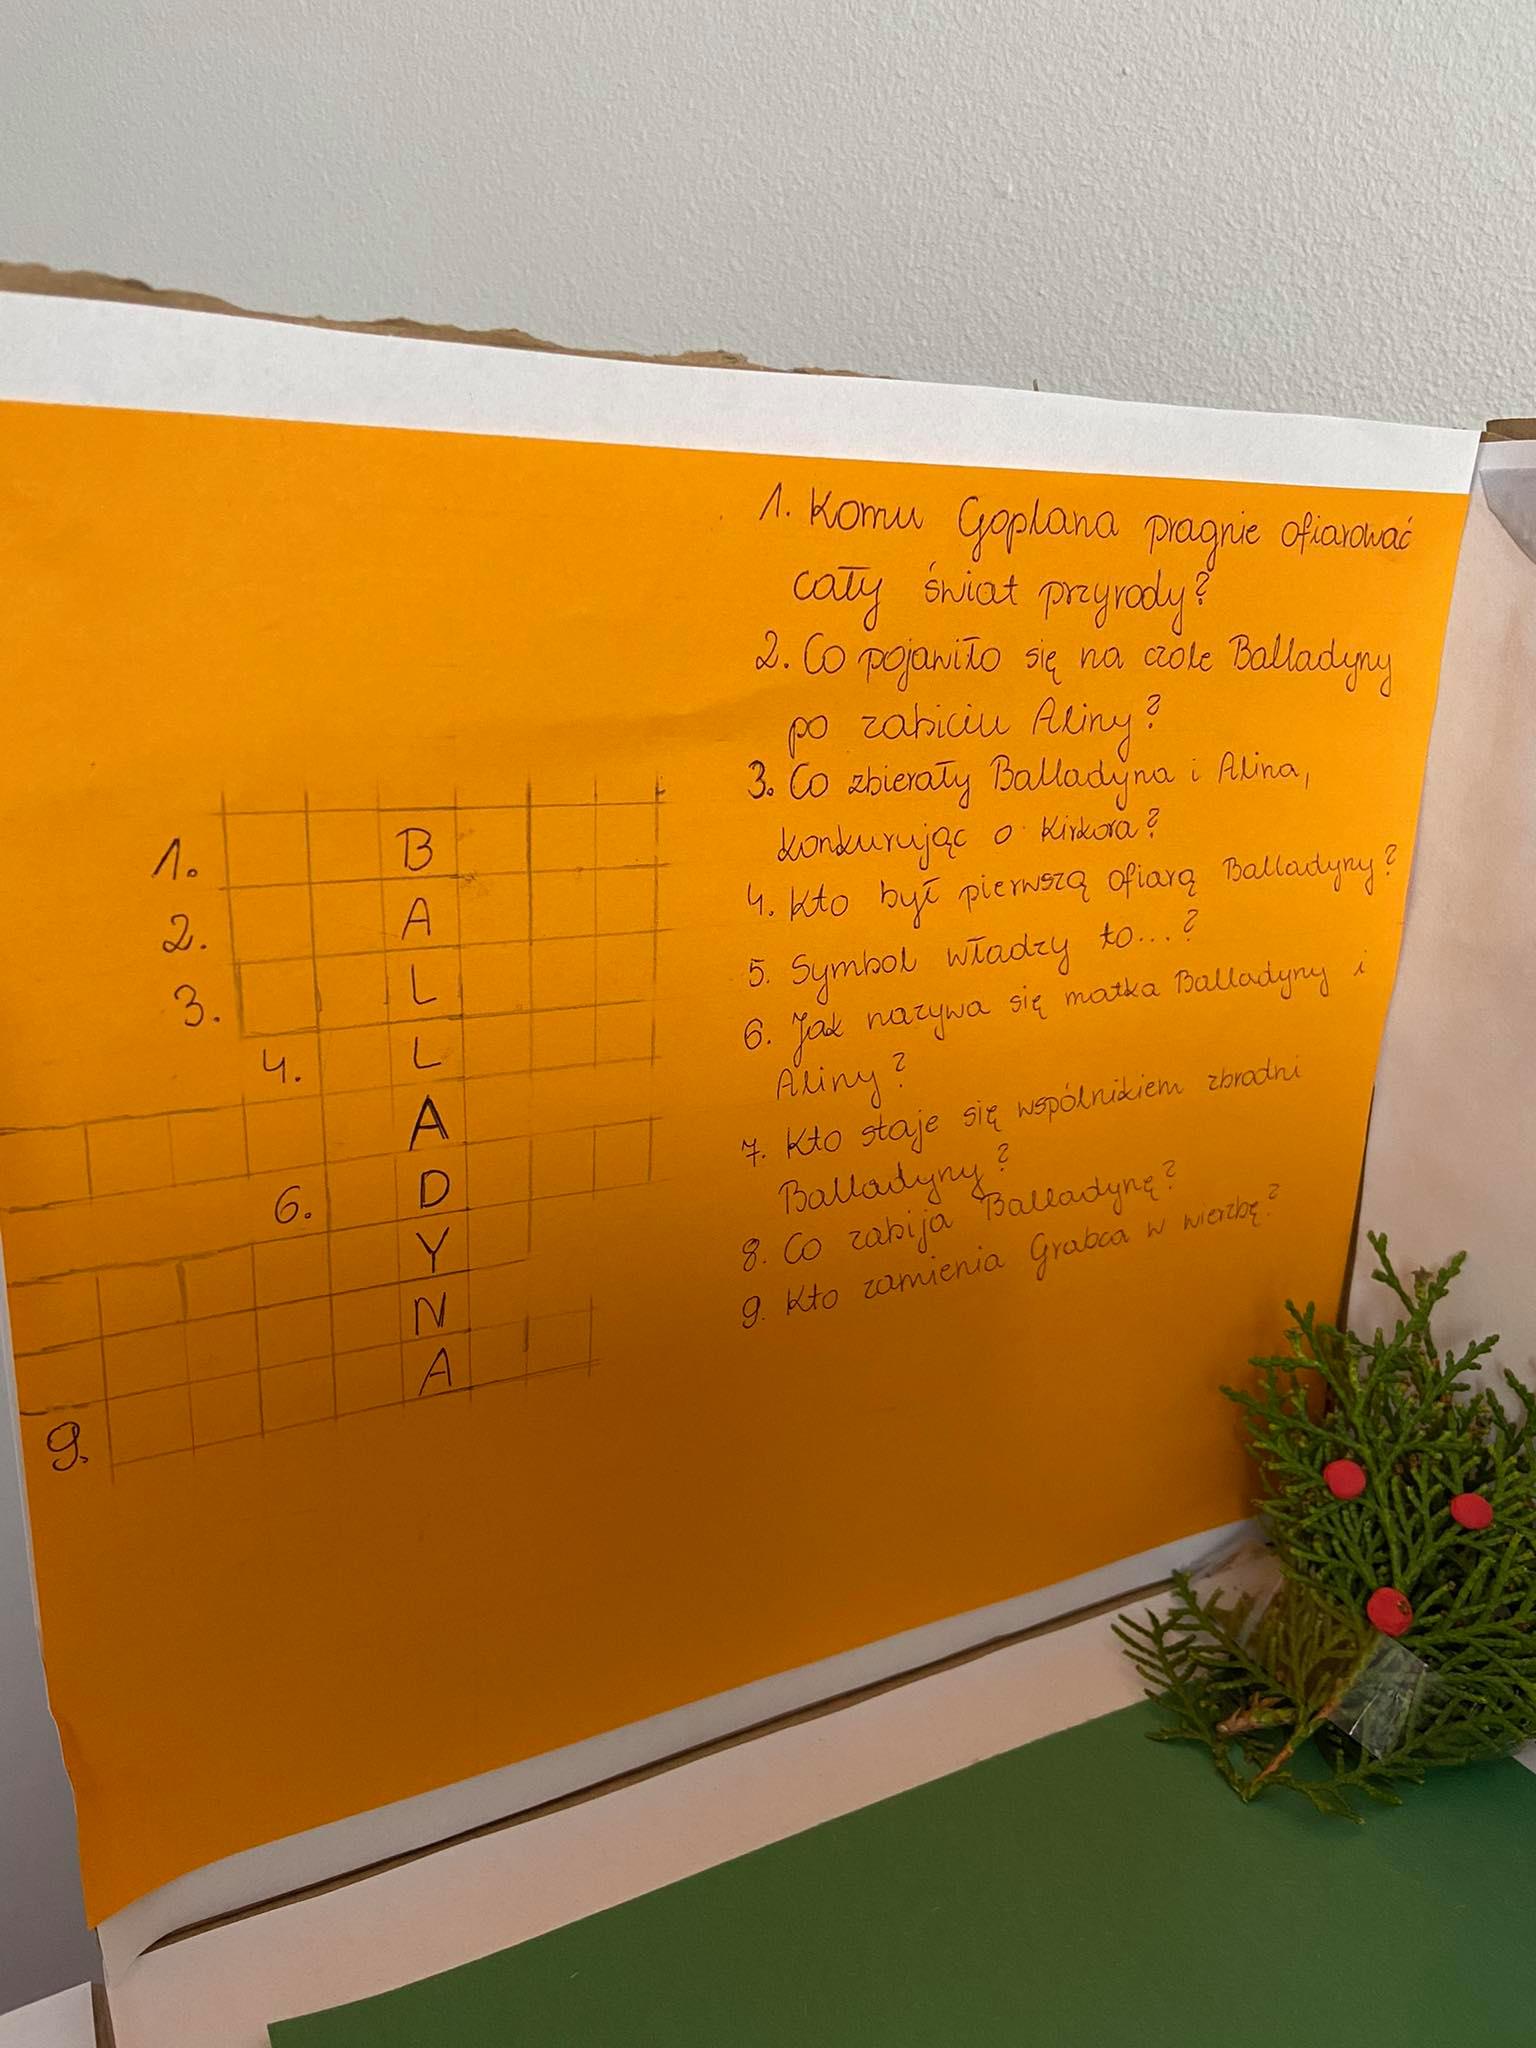 1. Komu Goplana pragnie ofiarować
cały świat przyrody?
2. Co pojawiło się na czole Balladyny
po zabiciu Aliny?
3. Co zbierały Balladyna i Alina,
konkurując o Kirkora?
4. Kto był pierwszą ofiarą Balladyny?
5. Symbol władzy to...?
6. Jak nazywa się matka Balladyny i
Aliny?
7. Kto staje się wspólnikiem zbrodni
Balladyny?
8. Co zabija Balladynę?
9. Kto zamienia Grabca w wierzbę?
1. B
2. A
3. L
4. L
A
6. D
Y
N
9. A